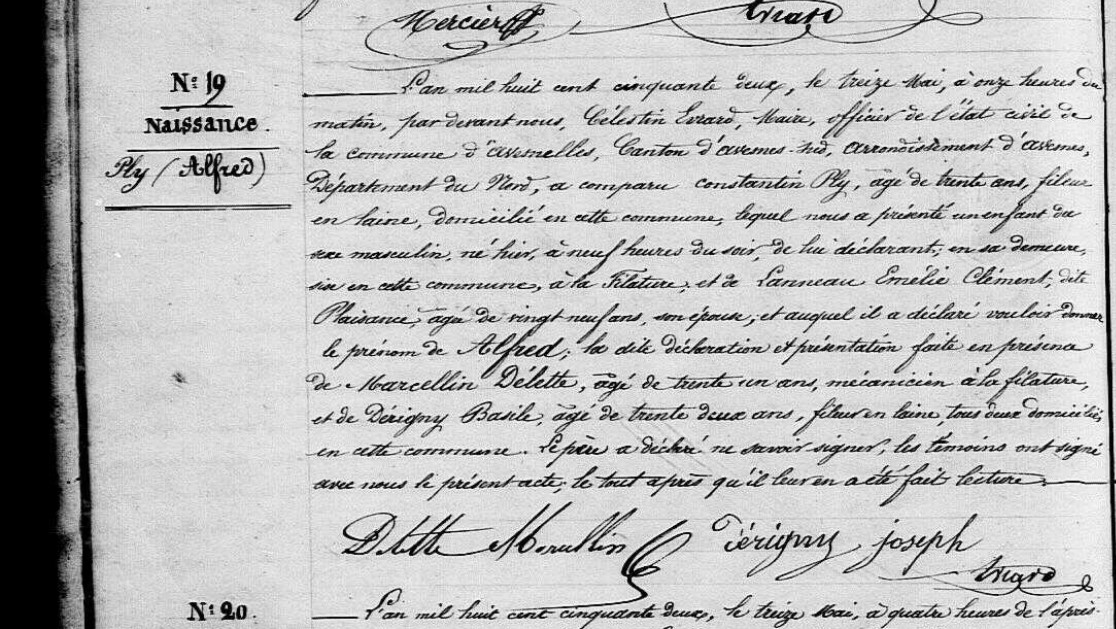 Mercier Evrard
N: 19
Naissance.
Ply (Alfred)
L'an mil huit cent cinquante deux, le treize Mai, à onze heures du
matin, par devant nous, Célestin Evrard, Maire, officier de l'état civil de
la commune d'avesnelles, Canton d'avesnes-sud, arrondissement d'avesnes,
Département du Nord, a comparu constantin Ply, âgé de trente ans, fileur
en laine, domicilié en cette commune, lequel nous a présenté un enfant du
sexe masculin, né hier, à neuf heures du soir, de lui déclarant, en sa demeure,
sise en cette commune, à la Filature; et de Lanneau Emélie Clément, dite
Plaisance, âgée de vingt neuf ans, son épouse; et auquel il a déclaré vouloir donner
le prénom de Alfred; la dite déclaration et présentation faite en présence
de Marcellin Délette, âgé de trente un ans, mécanicien à la filature,
et de Dérigny Basile, âgé de trente deux ans, fileur en laine, tous deux domiciliés
en cette commune. Le père a déclaré ne savoir signer, les témoins ont signé
avec nous le présent acte; le tout après qu'il leur en a été fait lecture.
Delette Marcellin Dérigny joseph
Evrard
N: 20.
L'an mil huit cent cinquante deux, le treize Mai, à quatre heures de l'après-